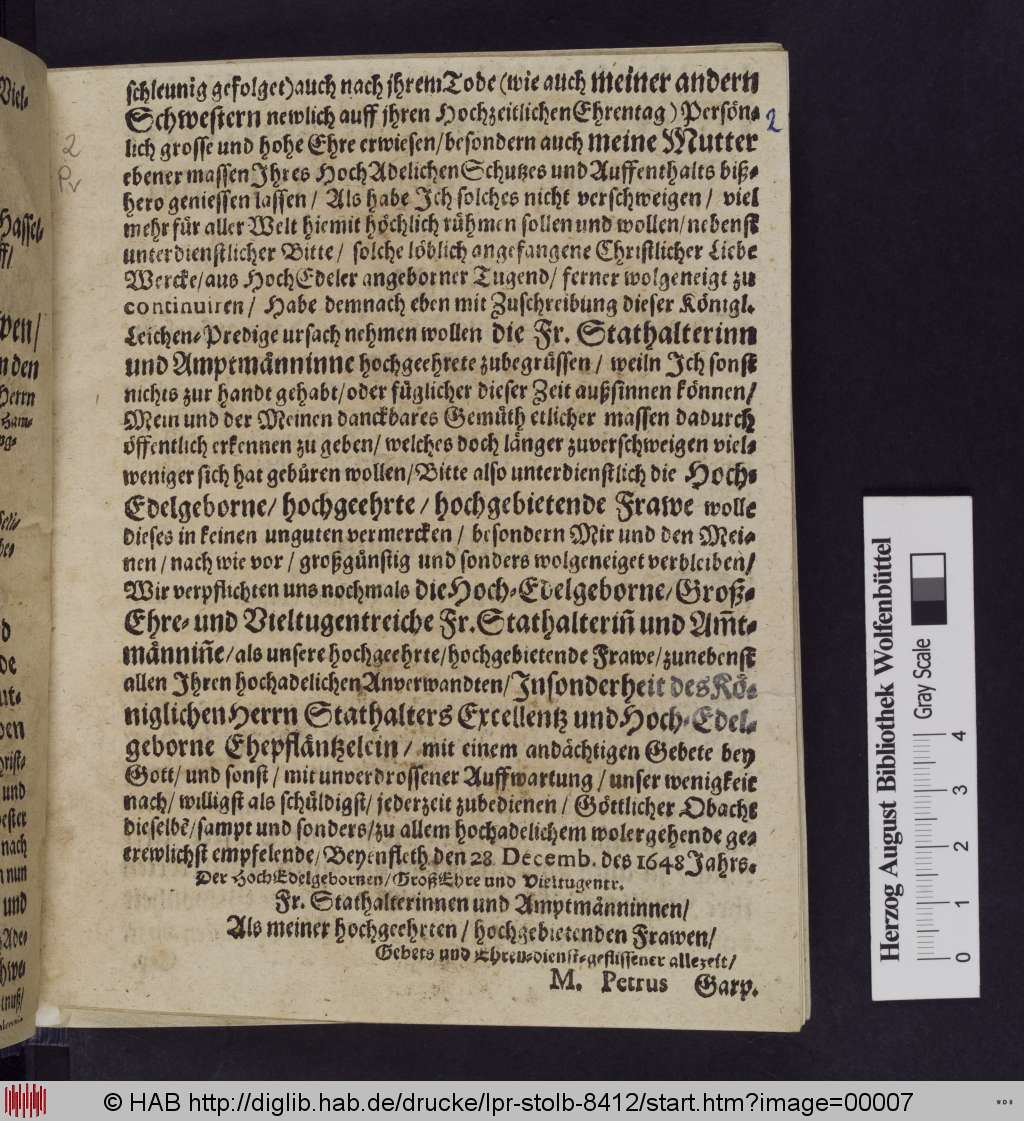 schleunig gefolget) auch nach jhrem Tode (wie auch meiner andern
Schwestern newlich auff jhren Hochzeitlichen Ehrentag) Persön-
lich grosse und hohe Ehre erwiesen/ besondern auch meine Mutter
ebener massen Jhres HochAdelichen Schutzes und Auffenthalts biß-
hero geniessen lassen/ Als habe Jch solches nicht verschweigen/ viel
mehr für aller Welt hiemit höchlich rühmen sollen und wollen/ nebenst
unterdienstlicher Bitte/ solche löblich angefangene Christlicher Liebe
Wercke/ aus HochEdeler angeborner Tugend/ ferner wolgeneigt zu
continuiren/ Habe demnach eben mit Zuschreibung dieser Königl.
Leichen-Predige ursach nehmen wollen die Fr. Stathalterinn
und Amptmänninne hochgeehrete zubegrüssen/ weiln Jch sonst
nichts zur handt gehabt/ oder füglicher dieser Zeit außsinnen können/
Mein und der Meinen danckbares Gemüth etlicher massen dadurch
öffentlich erkennen zu geben/ welches doch länger zuverschweigen viel-
weniger sich hat gebüren wollen/ Bitte also unterdienstlich die Hoch-
Edelgeborne/ hochgeehrte/ hochgebietende Frawe wolle
dieses in keinen unguten vermercken/ besondern Mir und den Mei-
nen/ nach wie vor/ großgünstig und sonders wolgeneiget verbleiben/
Wir verpflichten uns nochmals die Hoch-Edelgeborne/ Groß-
Ehre- und Vieltugentreiche Fr. Stathalteriñ und Am̃t-
männiñe/ als unsere hochgeehrte/ hochgebietende Frawe/ zunebenst
allen Jhren hochadelichen Anverwandten/ Jnsonderheit des Kö-
niglichen Herrn Stathalters Excellentz und Hoch-Edel-
geborne Ehepfläntzelein/ mit einem andächtigen Gebete bey
Gott/ und sonst/ mit unverdrossener Auffwartung/ unser wenigkeit
nach/ willigst als schüldigst/ jederzeit zubedienen/ Göttlicher Obacht
dieselbẽ/ sampt und sonders/ zu allem hochadelichem wolergehende ge-
trewlichst empfelende/ Beyenfleth den 28 Decemb. des 1648 Jahrs.
Der HochEdelgebornen/ GroßEhre und Vieltugentr.
Fr. Stathalterinnen und Amptmänninnen/
Als meiner hochgeehrten/ hochgebietenden Frawen/
Gebets und Ehren-dienst-geflissener allezeit/
M. Petrus Garp.
2
2
Pr
Herzog August Bibliothek Wolfenbüttel
Gray Scale
0 1 2 3 4
© HAB http://diglib.hab.de/drucke/lpr-stolb-8412/start.htm?image=00007